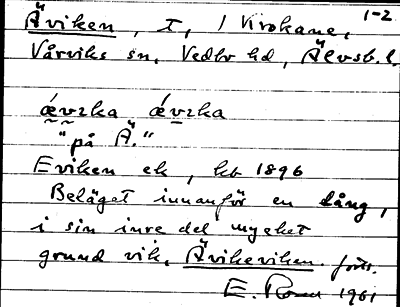 1-2
Äviken, T, 1 Krokane,
Vårviks sn, Vedbo hd, Älvsb. l.
ǽvɪka ǽvɪka
"på Ä."
Eviken ek, kb 1896
Beläget innanför en lång,
i sin inre del mycket
grund vik, Ävikeviken. forts.
E. 1961